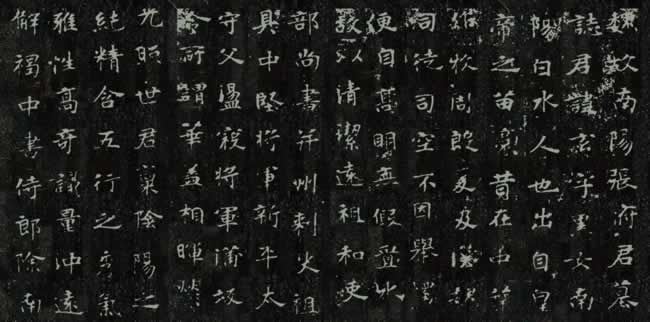 魏故南陽張府君墓
誌君諱玄字黑女南
陽白水人也出自皇
帝之苗裔昔在中葉
作牧周殷爰及漢魏
司徒司空不因舉燭
便自高明無假置水
故以清潔遠祖和吏
部尚書并州刺史祖
具中堅將軍新平太
守父盪寇將軍蒲坂
令所謂華蓋相暉榮
光照世君稟陰陽之
純精含五行之秀氣
雅性高奇識量沖遠
解褐中書侍郎除南